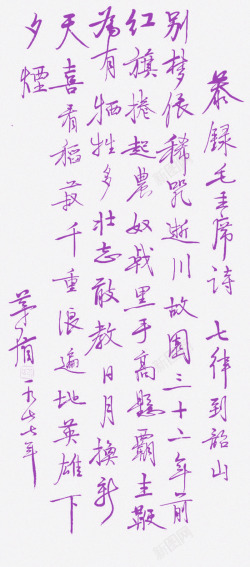 恭録毛主席诗 七律到韶山
别梦依稀咒逝川故園三十二年前
红旗捲起農奴戟黑手高懸霸主鞭
為有牺牲多壮志敢教日月換新
天喜看稻菽千重浪遍地英雄下
夕煙
茅盾 一九七七年